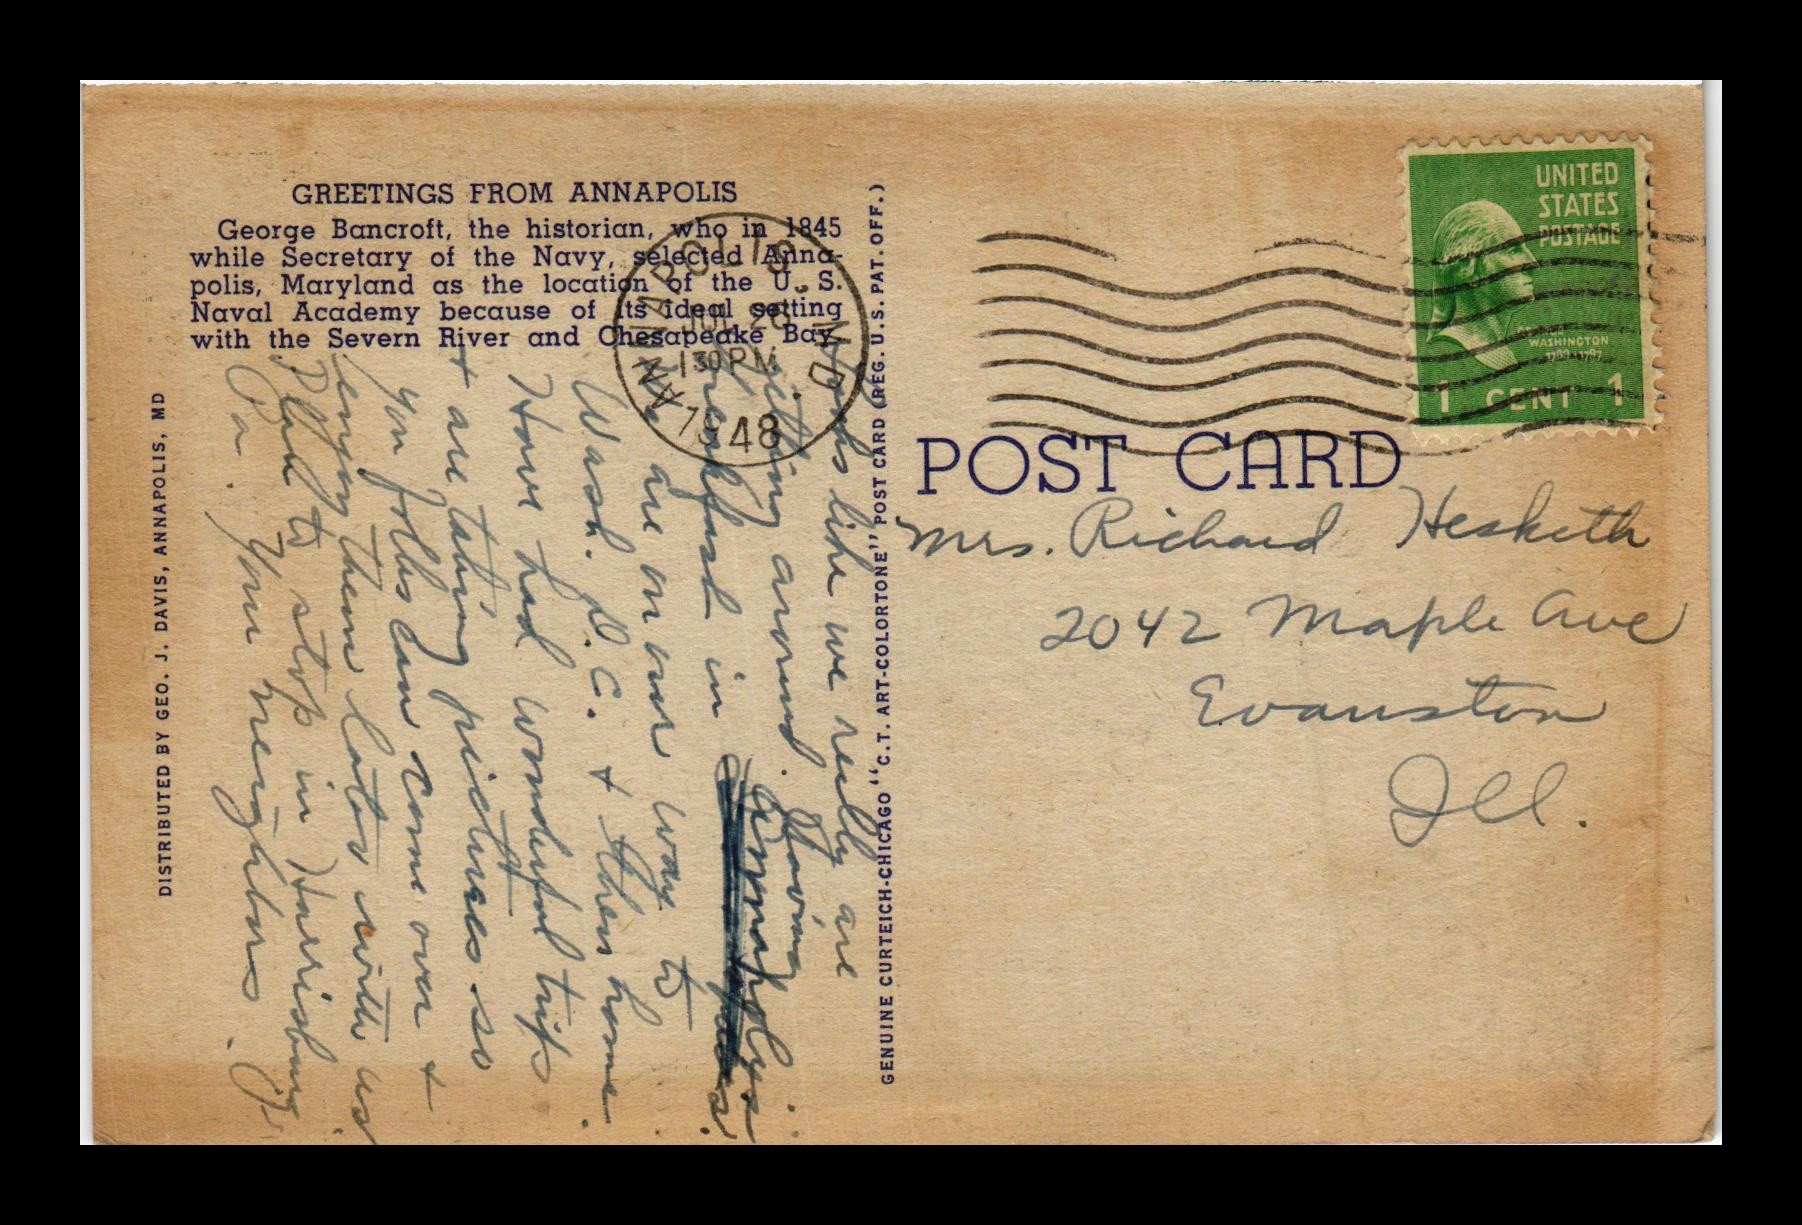 GREETINGS FROM ANNAPOLIS
George Bancroft, the historian, who in 1845
while Secretary of the Navy, selected Anna-
polis, Maryland as the location of the U. S.
Naval Academy because of its ideal setting
with the Severn River and Chesapeake Bay.
Looks like we really are
getting around. Having
breakfast in Annapolis.
We are on our way to
Wash. D.C. + then home.
Have had wonderful trip
+ are taking pictures so
you folks can come over +
enjoy them later with us.
Plan to stop in Harrisburg
Pa. Your neighbors.
DISTRIBUTED BY GEO. J. DAVIS, ANNAPOLIS, MD
GENUINE CURTEICH-CHICAGO "C.T. ART-COLORTONE" POST CARD (REG. U.S. PAT. OFF.)
ANNAPOLIS MD.
JUL 26
130 PM
1948
UNITED
STATES
POSTAGE
WASHINGTON
1789-1797
1 CENT 1
POST CARD
Mrs. Richard Hesketh
2042 Maple Ave
Evanston
Ill.